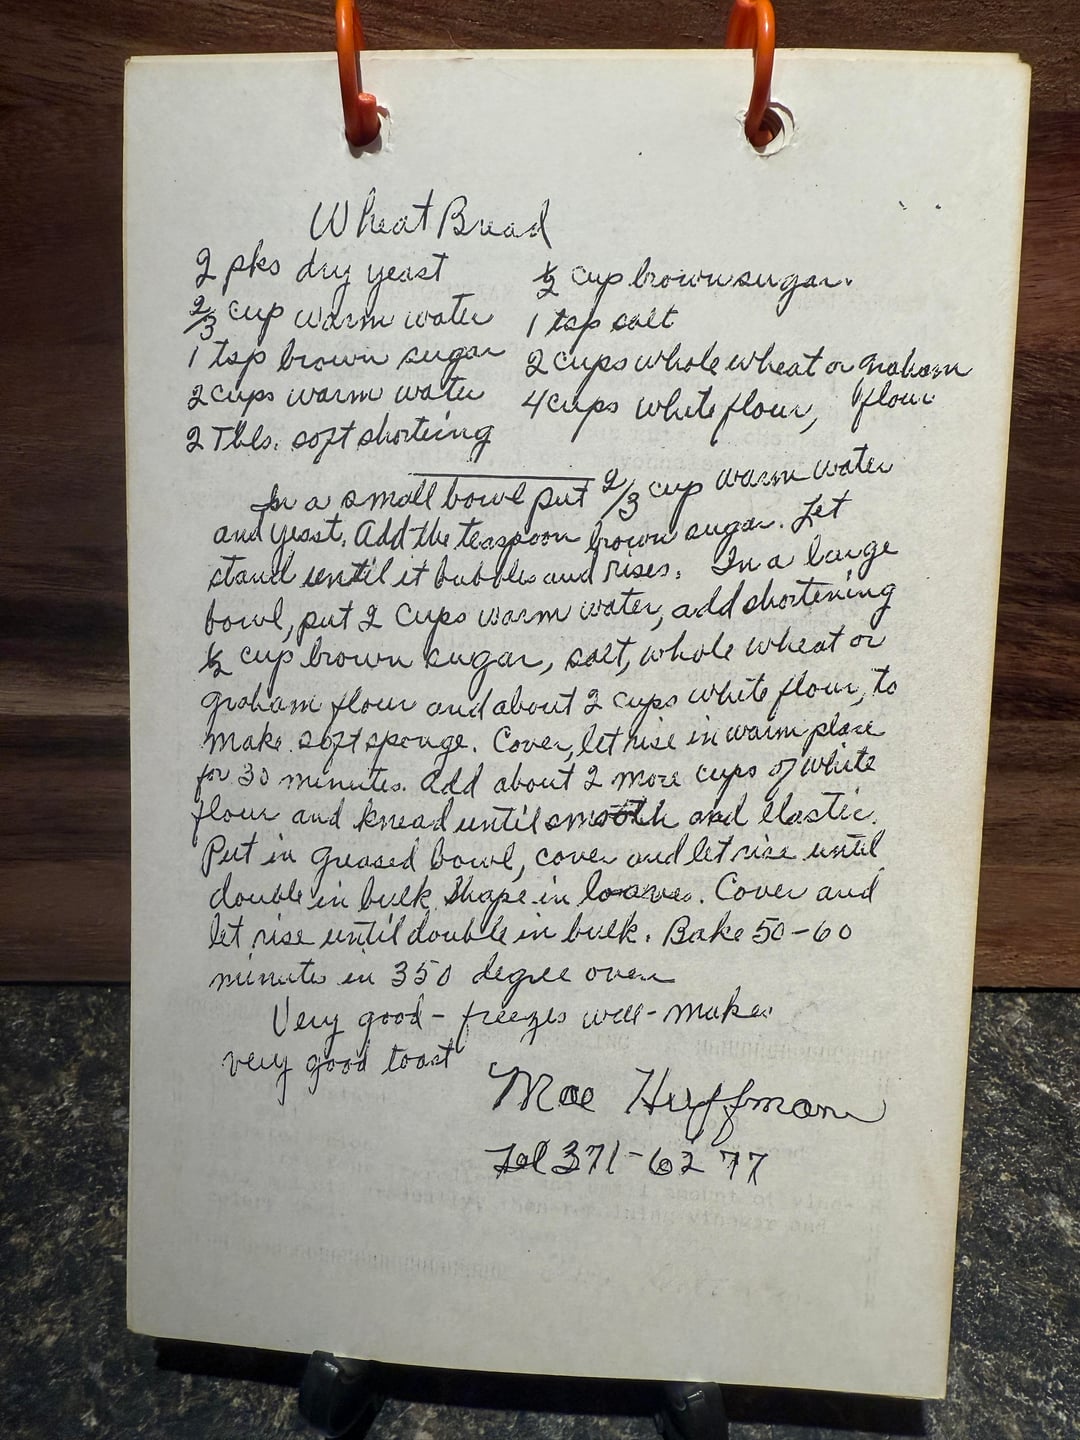 Wheat Bread
2 pks dry yeast
2/3 cup warm water
1 tsp brown sugar
2 cups warm water
2 Tbls. soft shorteing
1/2 cup brown sugar.
1 tsp salt
2 cups whole wheat or graham
flour
4 cups white flour,
In a small bowl put 2/3 cup warm water
and yeast. Add the teaspoon brown sugar. Let
stand until it bubbles and rises. In a large
bowl, put 2 cups warm water, add shortening
1/2 cup brown sugar, salt, whole wheat or
graham flour and about 2 cups white flour, to
make soft sponge. Cover, let rise in warm place
for 30 minutes. Add about 2 more cups of white
flour and knead until smooth and elastic.
Put in greased bowl, cover and let rise until
double in bulk. Shape in loaves. Cover and
let rise until double in bulk. Bake 50-60
minutes in 350 degree oven
Very good - freezes well - makes
very good toast
Mae Huffman
Tel 371-6277